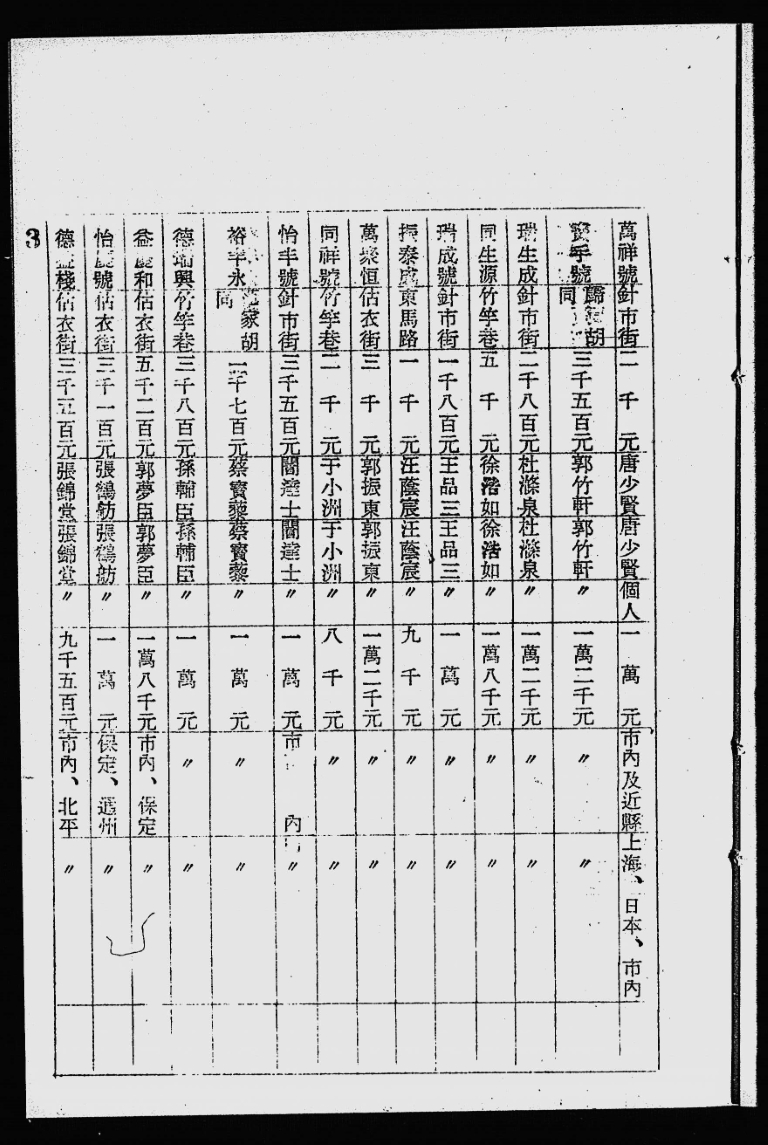 萬祥號 針市街 二千元 唐少賢 唐少賢 個人 一萬元 市內及近縣 上海、日本、市內
號 胡同 三千五百元 郭竹軒 郭竹軒 〃 一萬二千元 〃 〃
瑞生成 針市街 二千八百元 杜滌泉 杜滌泉 〃 一萬二千元 〃 〃
同生源 竹竿巷 五千元 徐澔如 徐澔如 〃 一萬八千元 〃 〃
瑞成號 針市街 一千八百元 王品三 王品三 〃 一萬元 〃 〃
振泰成 東馬路 一千元 汪蔭宸 汪蔭宸 〃 九千元 〃 〃
萬聚恒 估衣街 三千元 郭振東 郭振東 〃 一萬二千元 〃 〃
同祥號 竹竿巷 二千元 于小洲 于小洲 〃 八千元 〃 〃
怡丰號 針市街 三千五百元 關達士 關達士 〃 一萬元 市內 〃
裕丰永 家胡同 千七百元 蔡寶藜 蔡寶藜 〃 一萬元 〃 〃
德瑞興 竹竿巷 三千八百元 孫輔臣 孫輔臣 〃 一萬元 〃 〃
益慶和 估衣街 五千二百元 郭夢臣 郭夢臣 〃 一萬八千元 市內、保定 〃
怡慶號 估衣街 三千一百元 張鶴舫 張鶴舫 〃 一萬元 保定、通州 〃
德益棧 估衣街 三千五百元 張錦堂 張錦堂 〃 九千五百元 市內、北平 〃
3